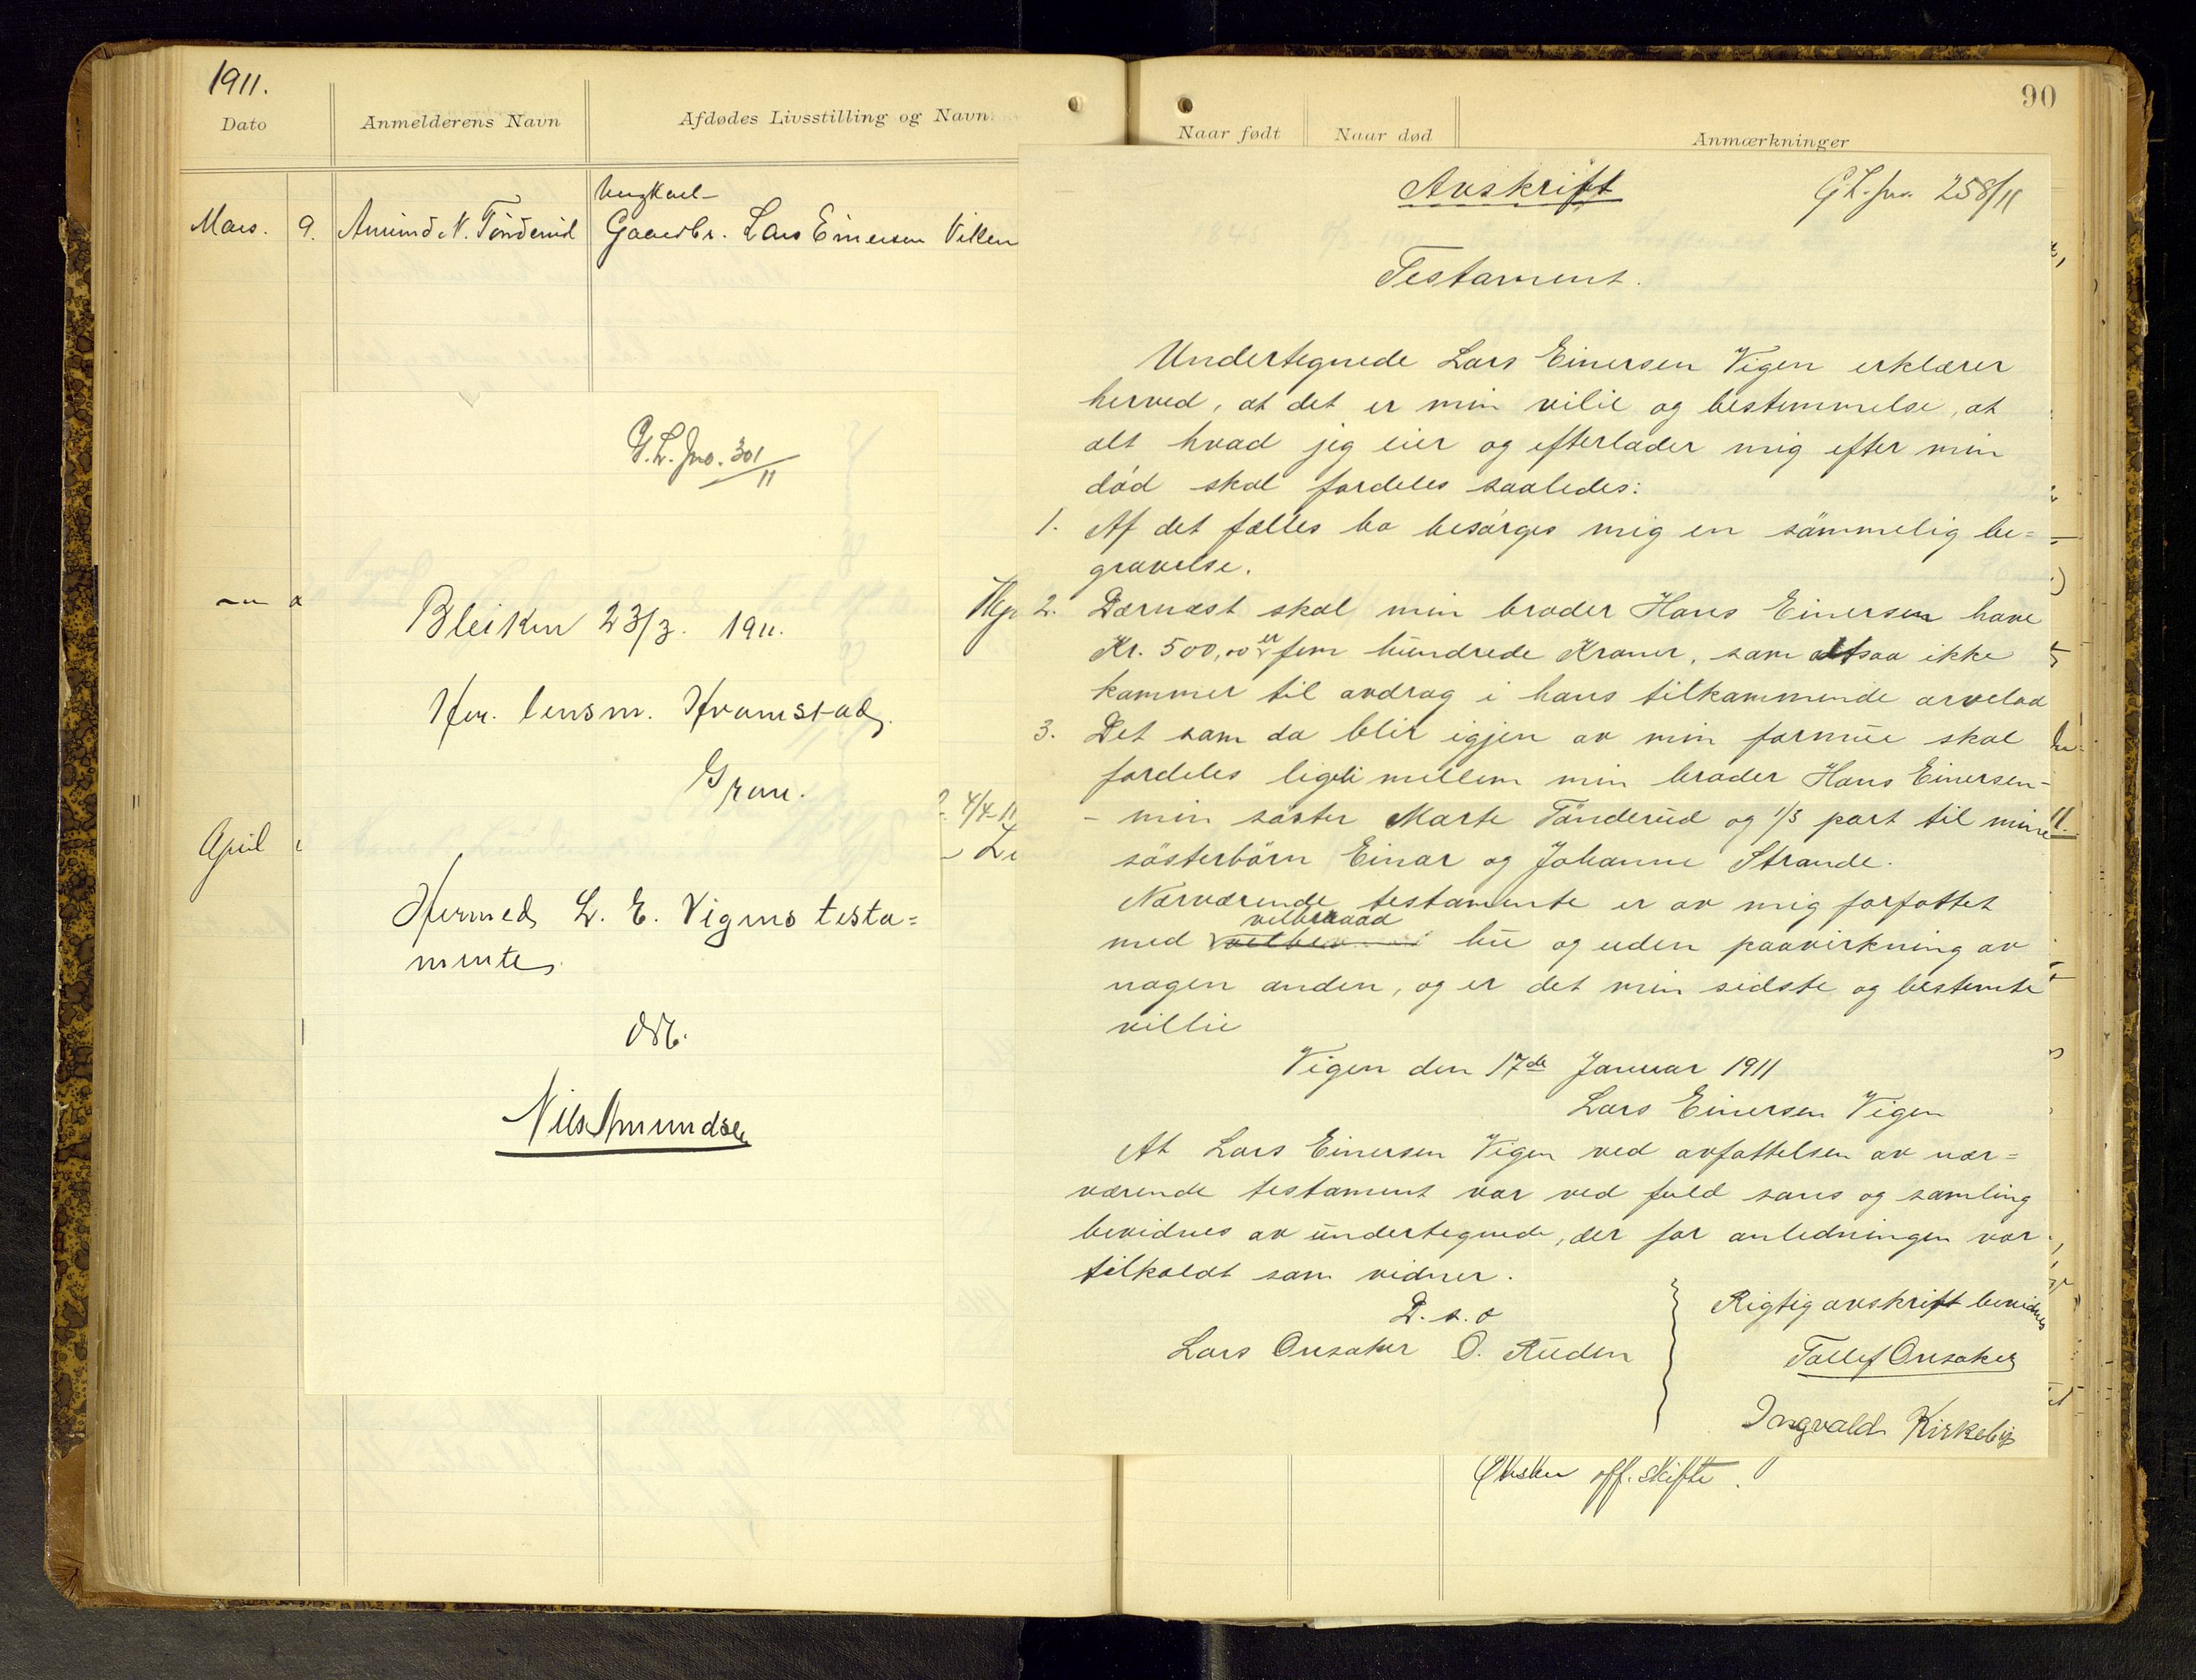 1911.
Dato
Anmelderens Navn
Afdødes Livsstilling og Navn
Ungkarl
Mars. 9. Amund N. Tønderud Gaardbr. Lars Einersen Viken
April
4/4-11
G.L. Jno. 301/11
Bleiken 23/3. 1911.
Hr. lensm. Hvamstad,
Gran.
Hermed L. E. Vigens testa=
mente,
Nils Amundsen
90
Naar født
Naar død
Anmærkninger
Avskrift
G L. Jno. 258/11
Testament.
Undertegnede Lars Einersen Vigen erklærer
herved, at det er min vilie og bestemmelse, at
alt hvad jeg eier og efterlader mig efter min
død skal fordeles saaledes:
1. Af det fælles bo besørges mig en sømmelig be=
gravelse.
2. Dærnæst skal min broder Hans Einersen have
Kr. 500,00 er fem hundrede Kroner, som altsaa ikke
kommer til avdrag i hans tilkommende arvelod
3. Det som da blir igjen av min formue skal
fordeles ligeli mellem min broder Hans Einersen-
- min søster Marte Tønderud og 1/3 part til mine
søsterbørn Einar og Johanne Strande.
Nærværende testamente er av mig forfattet
velberaad
med hu og uden paavirkning av
nogen anden, og er det min sidste og bestemte
villie
Vigen den 17de Januar 1911
Lars Einersen Vigen
At Lars Einersen Vigen ved avfattelsen av nær=
værende testament var ved fuld sans og samling
bevidnes av undertegnede, der for anledningen var
tilkaldt som vidner.
D. s. o
Lars Onsaker O. Ruden
Rigtig avskrift bevidnes
Tollef Onsaker
Ingvald Kirkeby
Ønsker off. skifte.